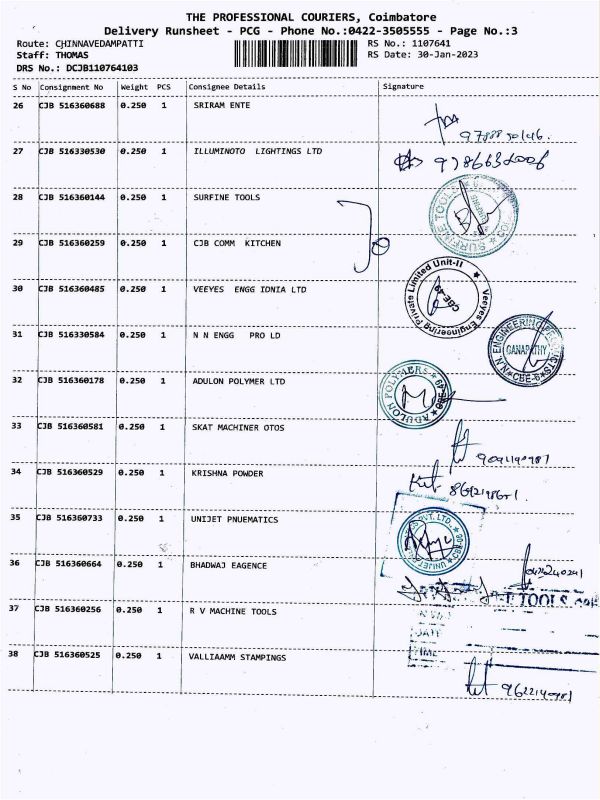 THE PROFESSIONAL COURIERS, Coimbatore
Delivery Runsheet - PCG - Phone No.:0422-3505555 - Page No.:3
Route: CHINNAVEDAMPATTI RS No.: 1107641
Staff: THOMAS RS Date: 30-Jan-2023
DRS No.: DCJB110764103
S No Consignment No Weight PCS Consignee Details Signature
26 CJB 516360688 0.250 1 SRIRAM ENTE
27 CJB 516330530 0.250 1 ILLUMINOTO LIGHTINGS LTD
28 CJB 516360144 0.250 1 SURFINE TOOLS
SURFINE TOOLS
29 CJB 516360259 0.250 1 CJB COMM KITCHEN
30 CJB 516360485 0.250 1 VEEYES ENGG IDNIA LTD
Veeyes Engineering Private Limited Unit-II
CBE-49
31 CJB 516330584 0.250 1 N N ENGG PRO LD
N.N. ENGINEERING
GANAPATHY
CBE-6
32 CJB 516360178 0.250 1 ADULON POLYMER LTD
ADULON POLYMERS
33 CJB 516360581 0.250 1 SKAT MACHINER OTOS
34 CJB 516360529 0.250 1 KRISHNA POWDER
35 CJB 516360733 0.250 1 UNIJET PNUEMATICS
UNIJET PVT. LTD.
36 CJB 516360664 0.250 1 BHADWAJ EAGENCE
37 CJB 516360256 0.250 1 R V MACHINE TOOLS
TOOLS
DATE
TIME
38 CJB 516360525 0.250 1 VALLIAAMM STAMPINGS